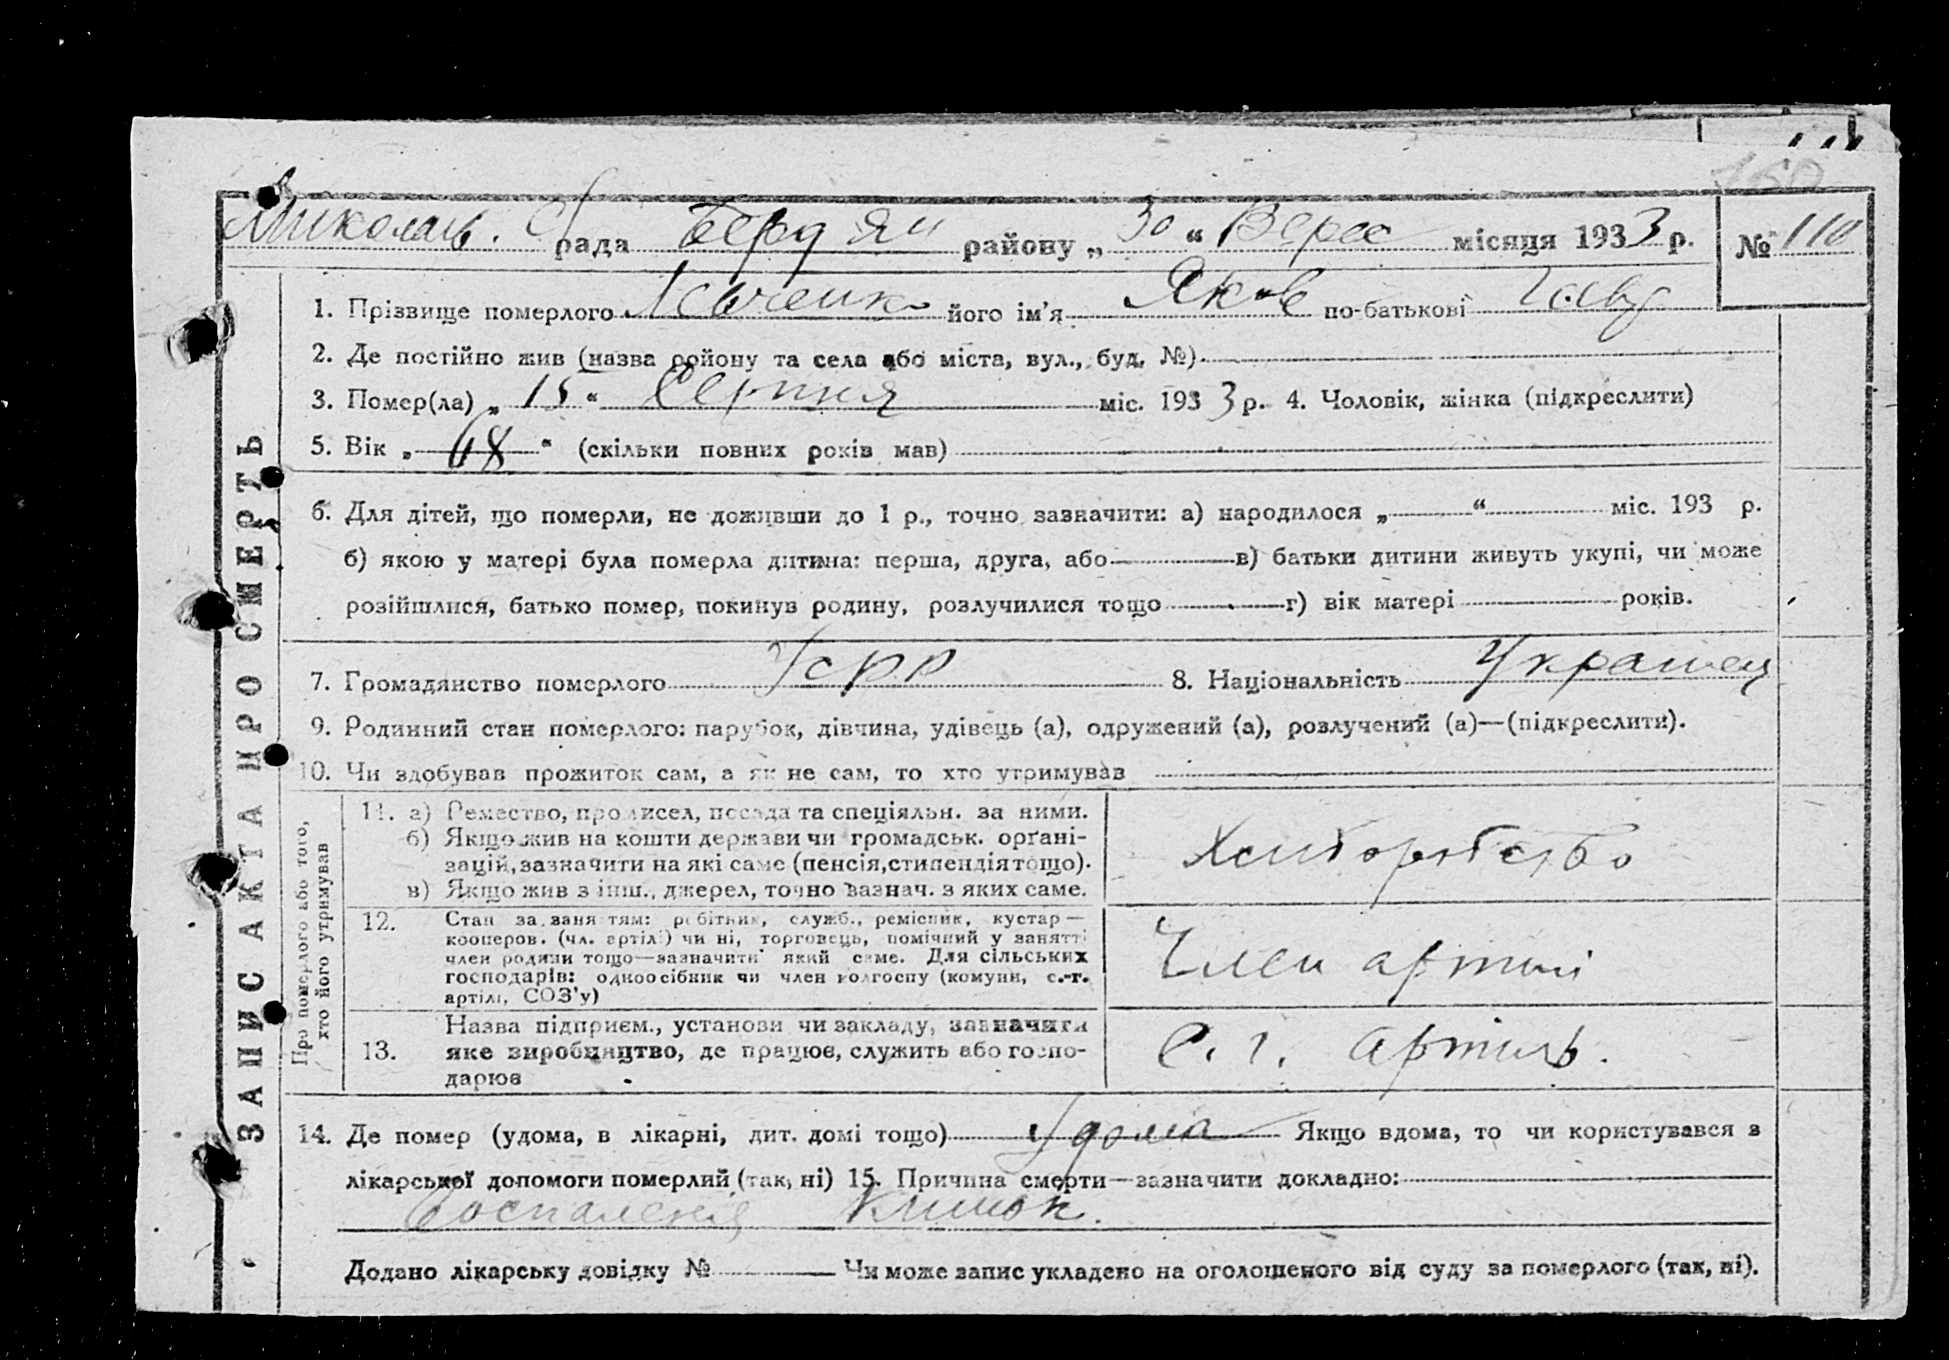 150
Миколаїв. с/рада Бердян району „30“ Верес місяця 1933 р. № 110
1. Прізвище померлого його ім'я Яков по-батькові
2. Де постійно жив (назва району та села або міста, вул., буд. №)
3. Помер(ла) „15“ Серпня міс. 1933 р. 4. Чоловік, жінка (підкреслити)
5. Вік „68“ (скільки повних років мав)
6. Для дітей, що померли, не доживши до 1 р., точно зазначити: а) народилося „ “ міс. 193 р.
б) якою у матері була померла дитина: перша, друга, або в) батьки дитини живуть укупі, чи може
розійшлися, батько помер, покинув родину, розлучилися тощо г) вік матері років.
7. Громадянство померлого УСРР 8. Національність Украинец
9. Родинний стан померлого: парубок, дівчина, удівець (а), одружений (а), розлучений (а)—(підкреслити).
10. Чи здобував прожиток сам, а як не сам, то хто утримував
Про померлого або того, хто його утримував
11. а) Ремество, промисел, посада та спеціяльн. за ними.
б) Якщо жив на кошти держави чи громадськ. орґані-
зацій, зазначити на які саме (пенсія, стипендія тощо).
в) Якщо жив з інш., джерел, точно зазнач. з яких саме.
Хлиборобство
12. Стан за заняттям: робітник, служб., ремісник, кустар—
кооперов. (чл. артілі) чи ні, торговець, помічний у занятті
член родини тощо—зазначити який саме. Для сільських
господарів: одноосібник чи член колгоспу (комуни, с.-г.
артілі, СОЗ'у)
Член артилі
13. Назва підприєм., установи чи закладу, зазначити
яке виробництво, де працює, служить або госпо-
дарює
С. г. артиль.
14. Де помер (удома, в лікарні, дит. домі тощо) Удома Якщо вдома, то чи користувався з
лікарської допомоги померлий (так, ні) 15. Причина смерти—зазначити докладно:
Воспаленія кишок.
Додано лікарську довідку № Чи може запис укладено на оголошеного від суду за померлого (так, ні).
ЗАПИС АКТА ПРО СМЕРТЬ